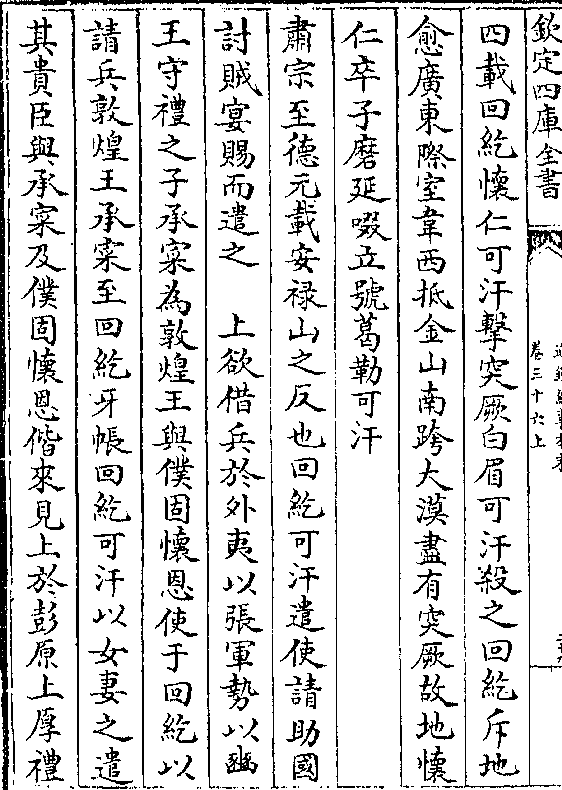 欽定四庫全書
卷三十六上
四載回紇懷仁可汗擊突厥白眉可汗殺之回紇斥地
愈廣東際室韋西抵金山南跨大漠盡有突厥故地懷
仁卒子磨延啜立號葛勒可汗
肅宗至德元載安禄山之反也回紇可汗遣使請助國
討賊宴賜而遣之　上欲借兵於外夷以張軍勢以豳
王守禮之子承寀為敦煌王與僕固懷恩使于回紇以
請兵敦煌王承寀至回紇牙帳回紇可汗以女妻之遣
其貴臣與承寀及僕固懷恩偕來見上於彭原上厚禮